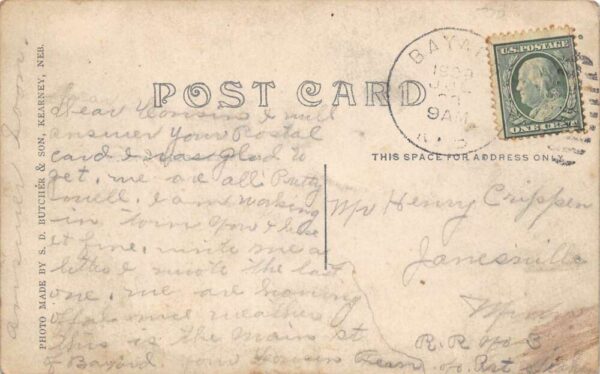 POST CARD
THIS SPACE FOR ADDRESS ONLY
PHOTO MADE BY S. D. BUTCHER & SON, KEARNEY, NEB.
answer soon.
BAYARD
1909
9AM
U.S. POSTAGE
ONE CENT
Dear Cousin I will
answer your Postal
card I was glad to
get. we are all Pretty
well. I am working
in town you & bese
it fine. write me a
letter I wrote the last
one. we are having
offal nice weather
this is the Main st
of Bayard your Cousin Fern
Mr Henry Crippen
Janesville
Minn
R.R. No 3